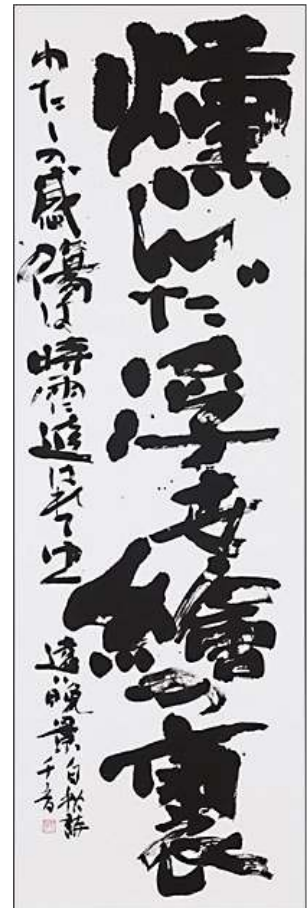 燻んだ浮世繪の裏
わたしの感傷は時雨に追はれてゆく
遠い晩景 白秋詩
千音